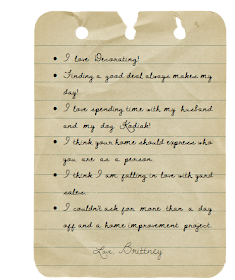 • I love Decorating!
• Finding a good deal always makes my
day!
• I love spending time with my husband
and my dog Kodiak!
• I think your home should express who
you are as a person.
• I think I am falling in love with yard
sales.
• I couldn't ask for more than a day
off and a home improvement project.
Love, Brittney